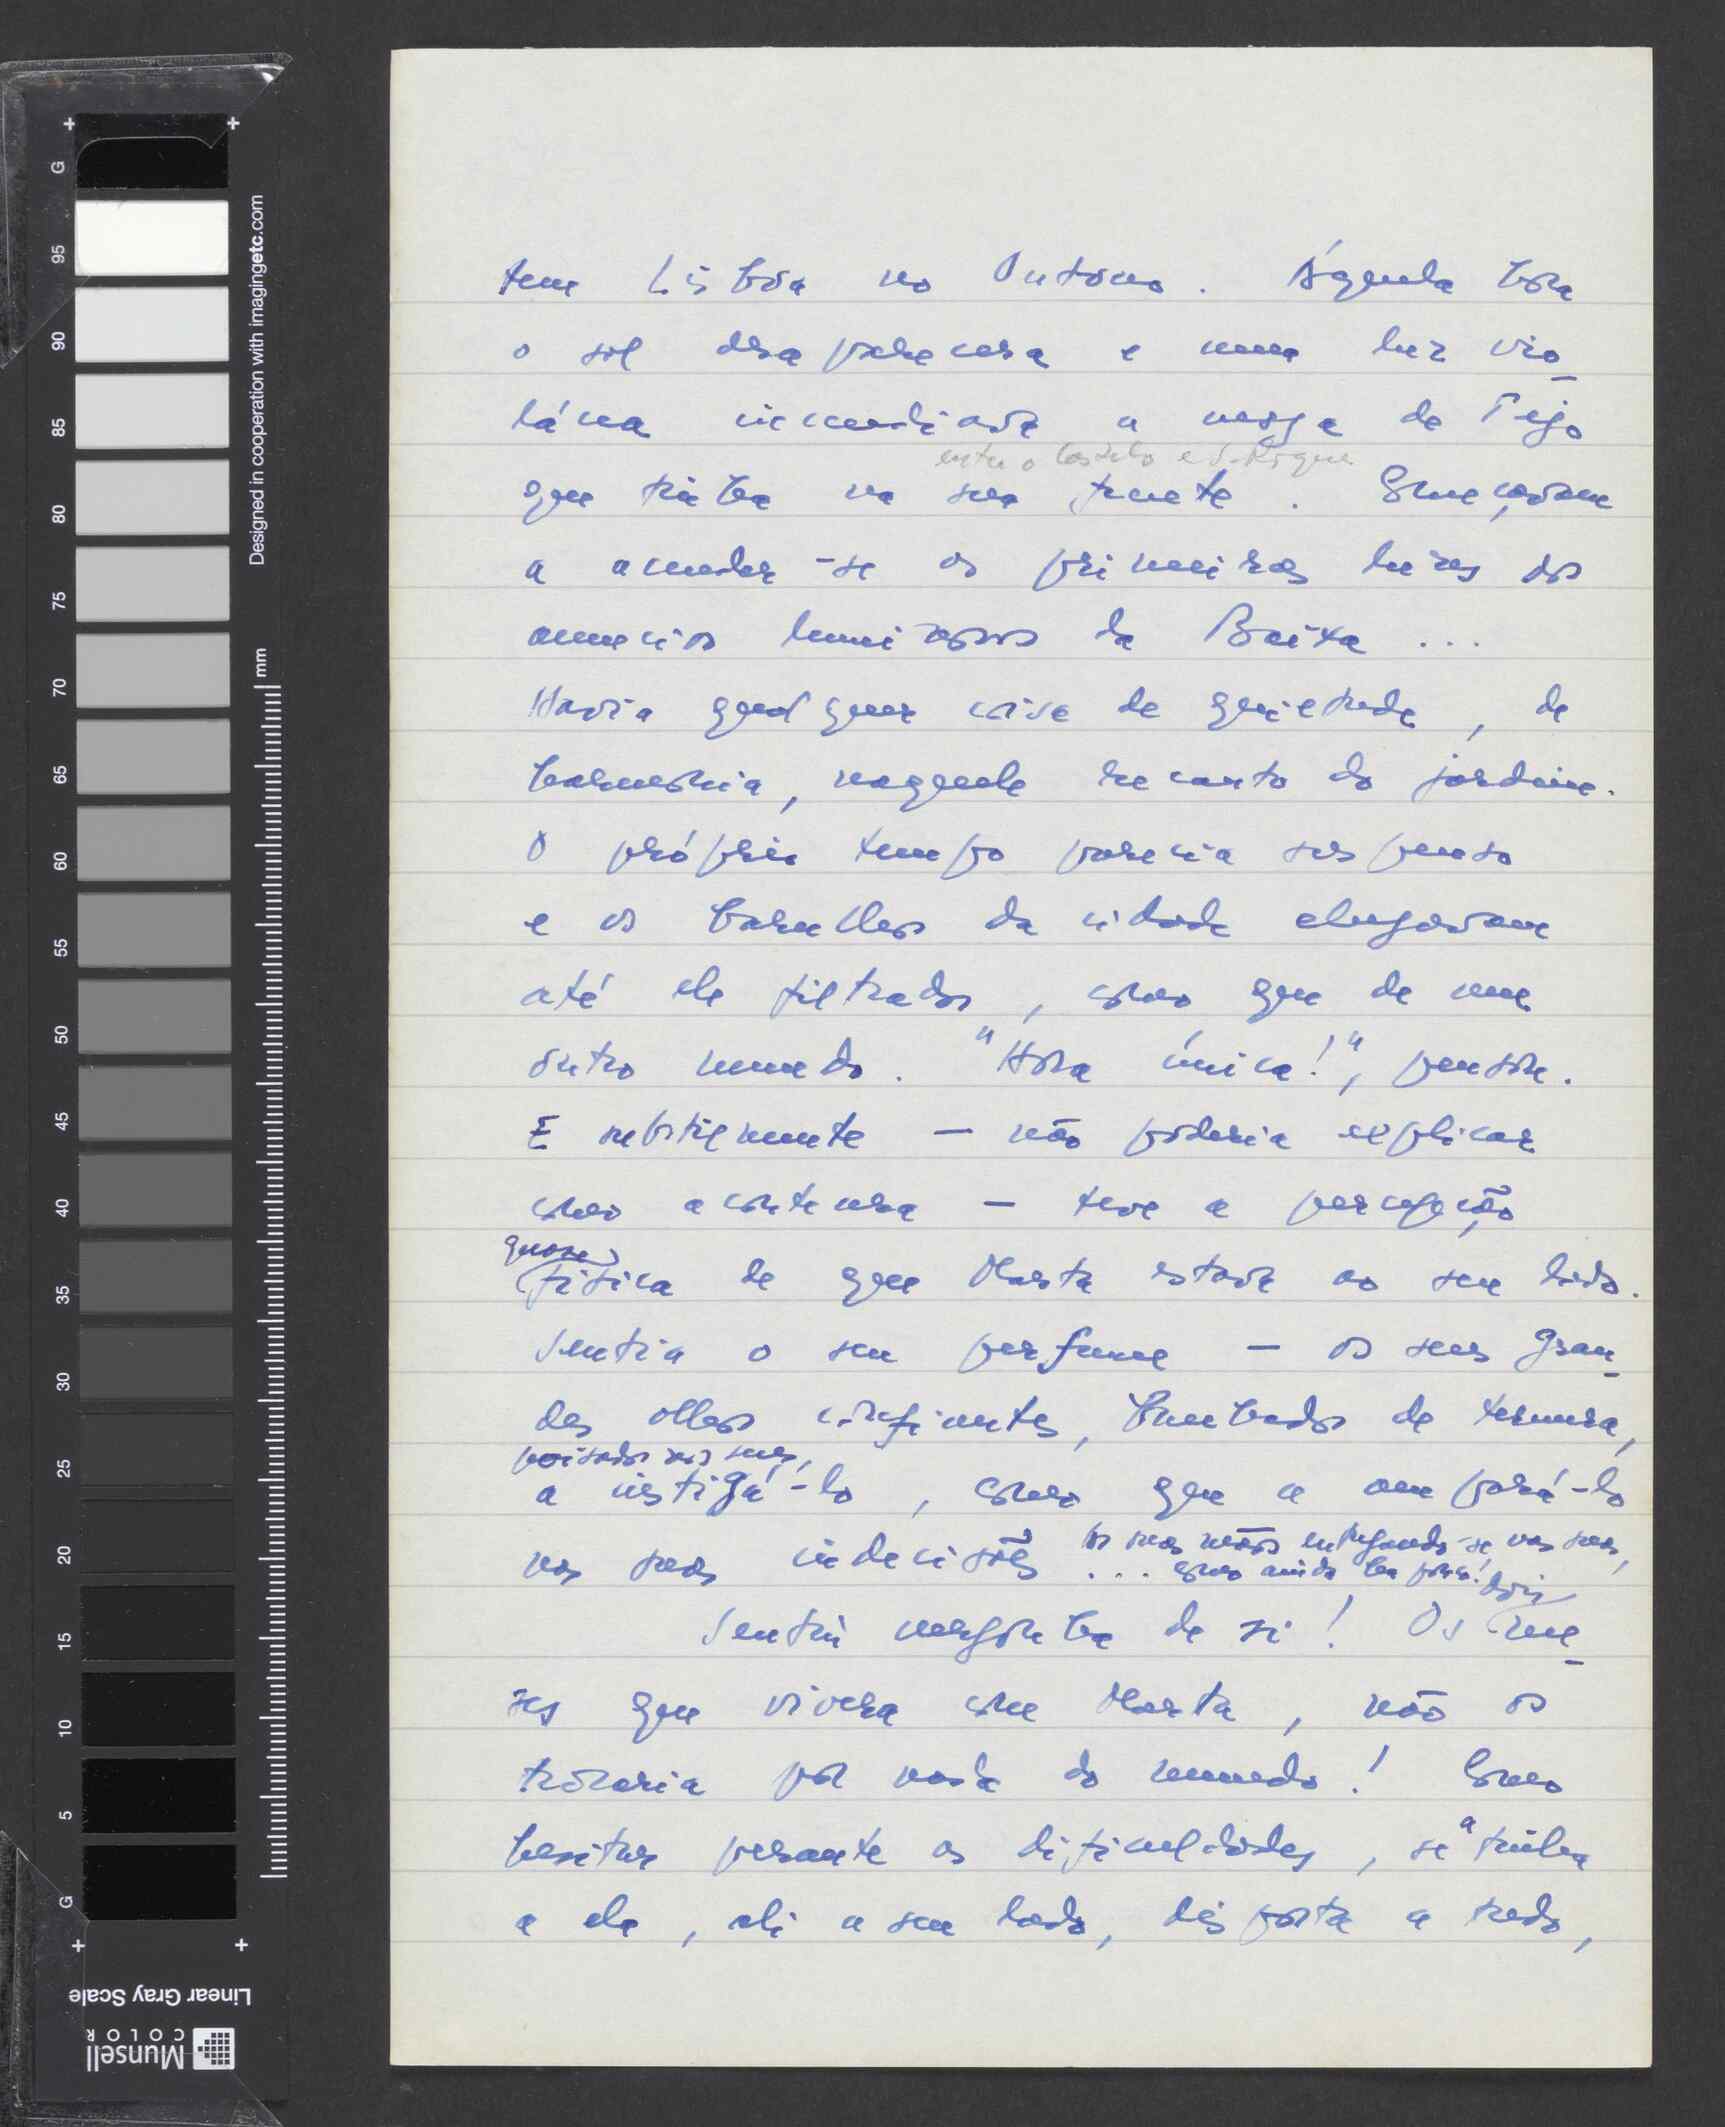 tem Lisboa no Outono. Àquela hora
o sol desaparecera e uma luz vio-
lácea incendiava a nesga do Tejo
entre o Castelo e S. Roque
que tinha na sua frente. Começavam
a acender-se as primeiras luzes dos
anuncios luminosos da Baixa...
Havia qualquer coisa de quietude, de
harmonia, naquele recanto do jardim.
O próprio tempo parecia suspenso
e os barulhos da cidade chegavam
até ele filtrados, como que de um
outro mundo. "Hora única!", pensou.
E subitamente — não poderia explicar
como acontecera — teve a percepção
quase
física de que Marta estava ao seu lado.
Sentia o seu perfume — os seus gran-
des olhos confiantes, banhados de ternura,
poisados nos seus,
a instigá-lo, como que a ampará-lo
as suas mãos entregando-se nas suas,
nas suas indecisões... como ainda ha pouco!
dois
Sentiu vergonha de si! Os me-
ses que vivera com Marta, não os
trocaria por nada do mundo! Como
hesitar perante as dificuldades, se a tinha
a ela, ali a seu lado, disposta a tudo,
Designed in cooperation with imagingetc.com
mm
G 95 90 85 80 75 70 65 60 55 50 45 40 35 30 25 20 15 10 5 G
Linear Gray Scale
Munsell
COLOR